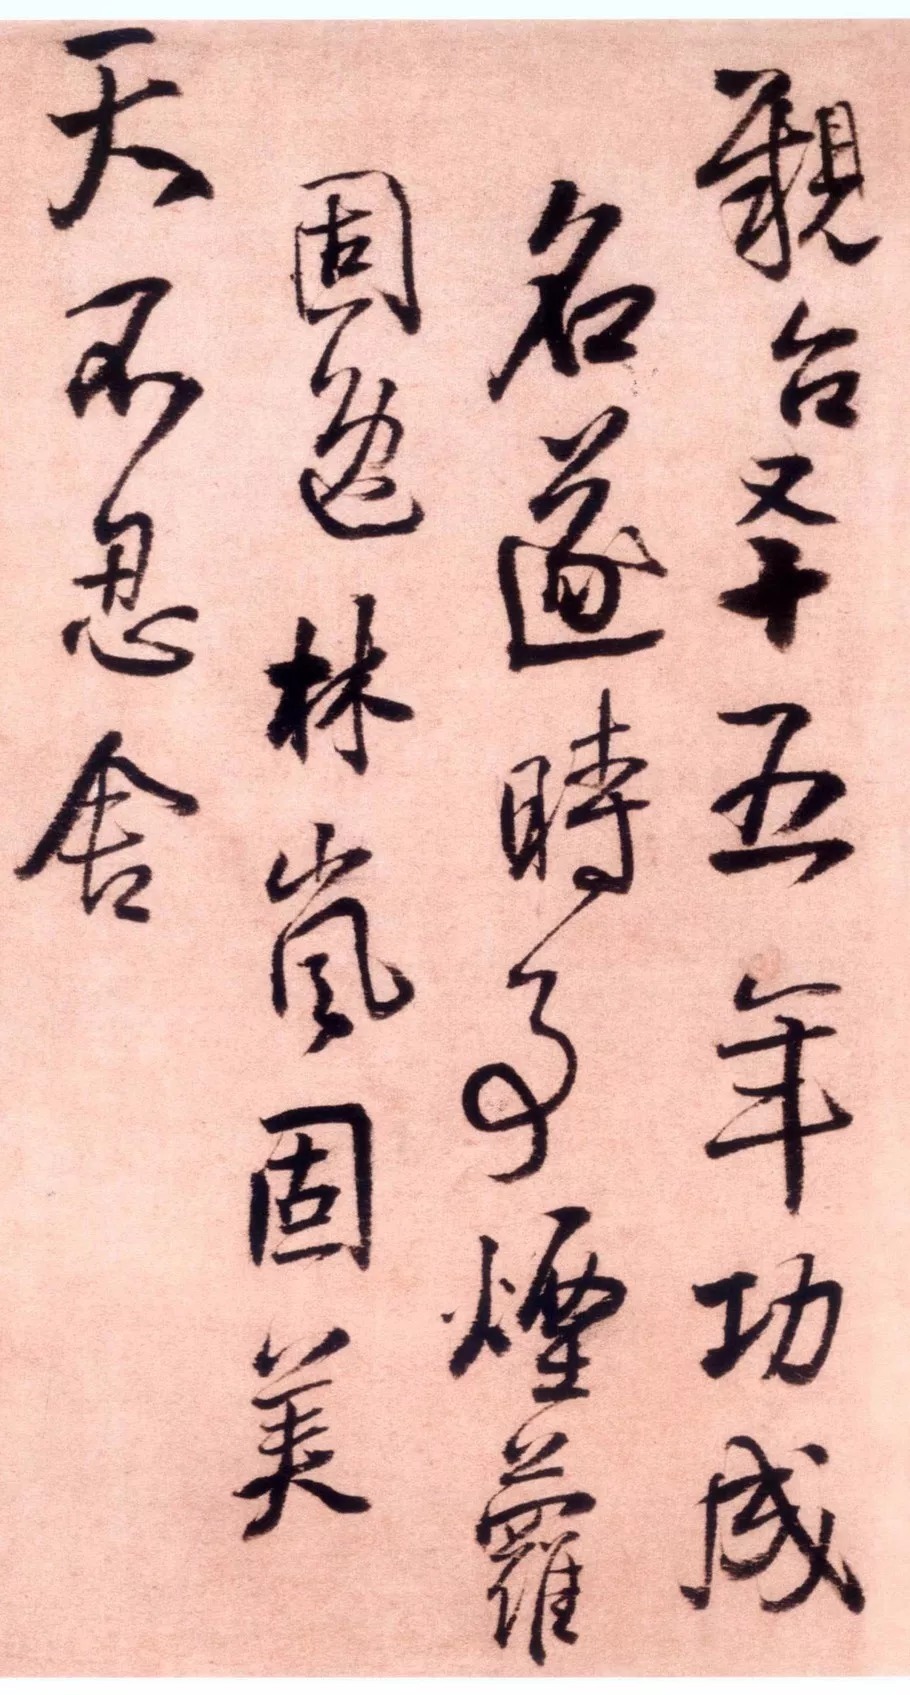 觀台又十五年功成
名遂時煙蘿
固林嵐固美
天不忍舍